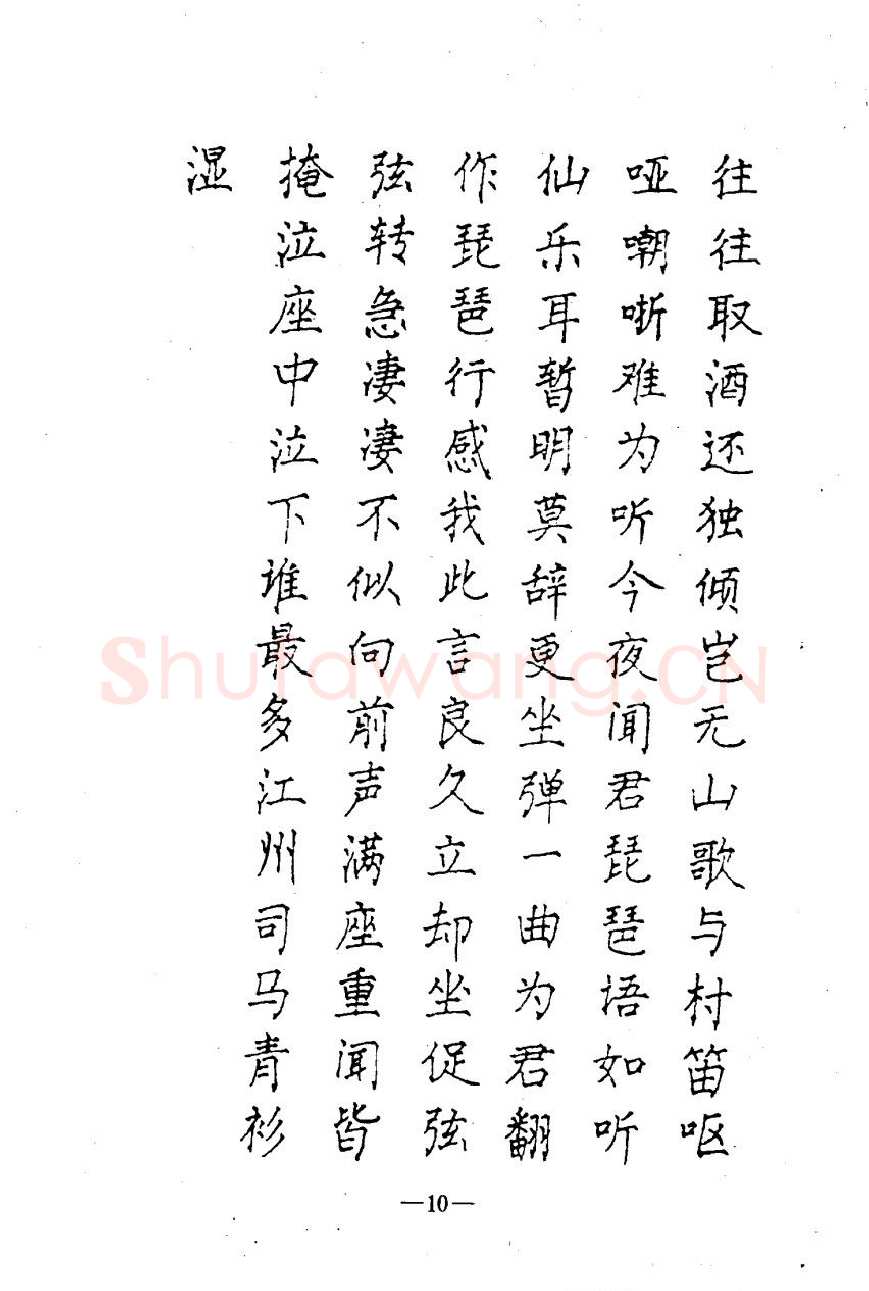 往往取酒还独倾岂无山歌与村笛呕
哑嘲哳难为听今夜闻君琵琶语如听
仙乐耳暂明莫辞更坐弹一曲为君翻
作琵琶行感我此言良久立却坐促弦
弦转急凄凄不似向前声满座重闻皆
掩泣座中泣下谁最多江州司马青衫
湿
Shufawang.CN
—10—